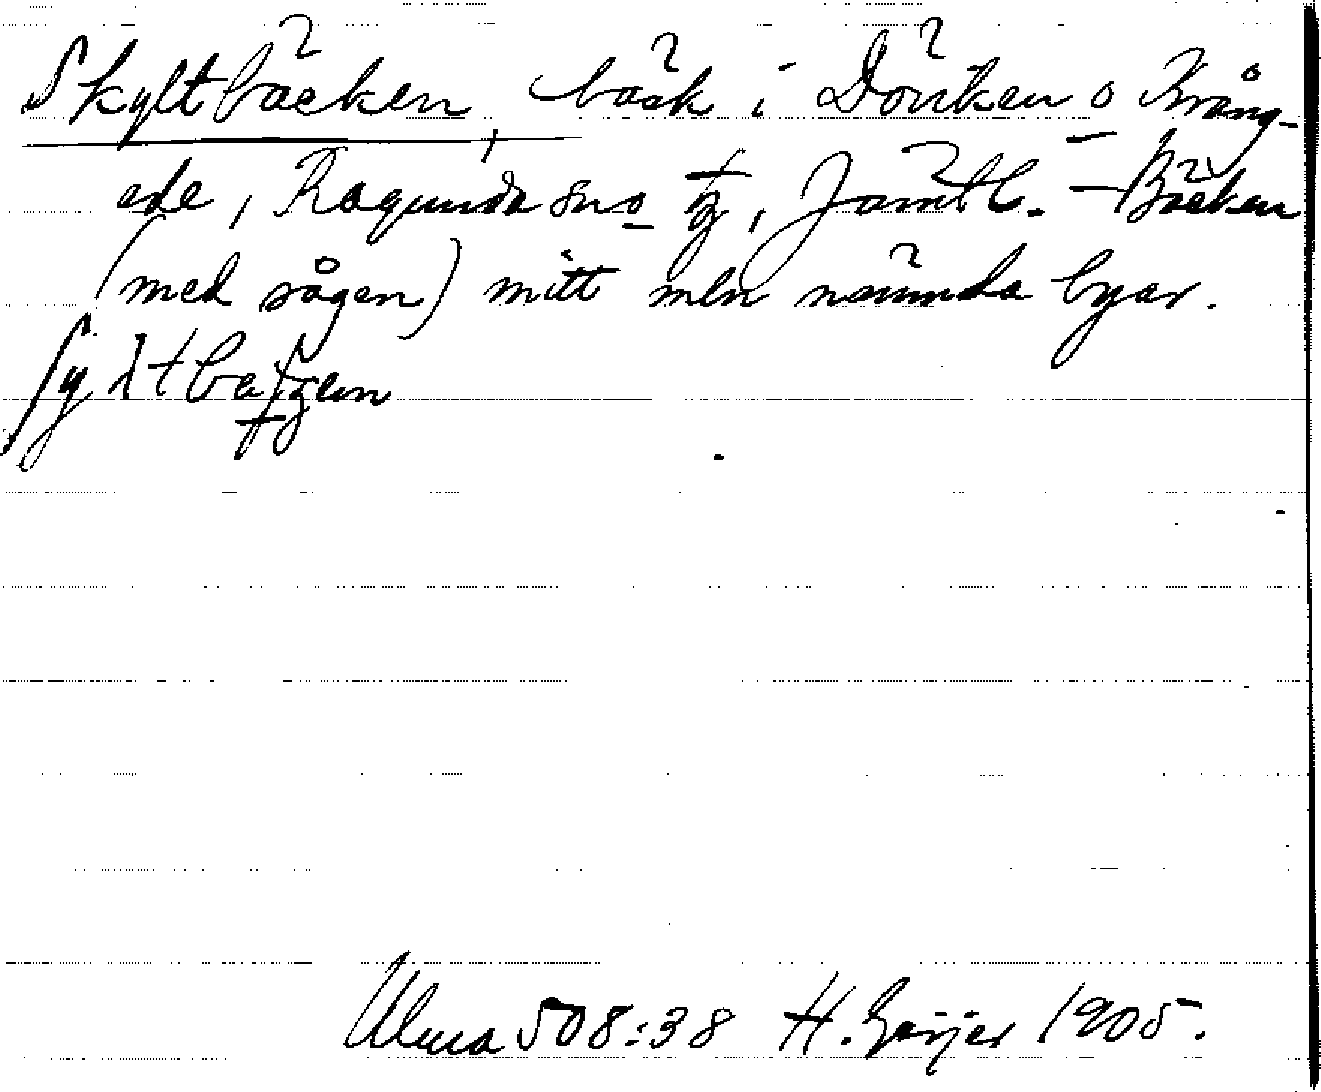 Skyltbäcken, bäck i Döviken o Krång-
ede, Ragunda sn o tg, Jämtl. - Bäcken
(med sågen) mitt mln nämnda byar.
Ulma 508:38 H. Geijer 1905.